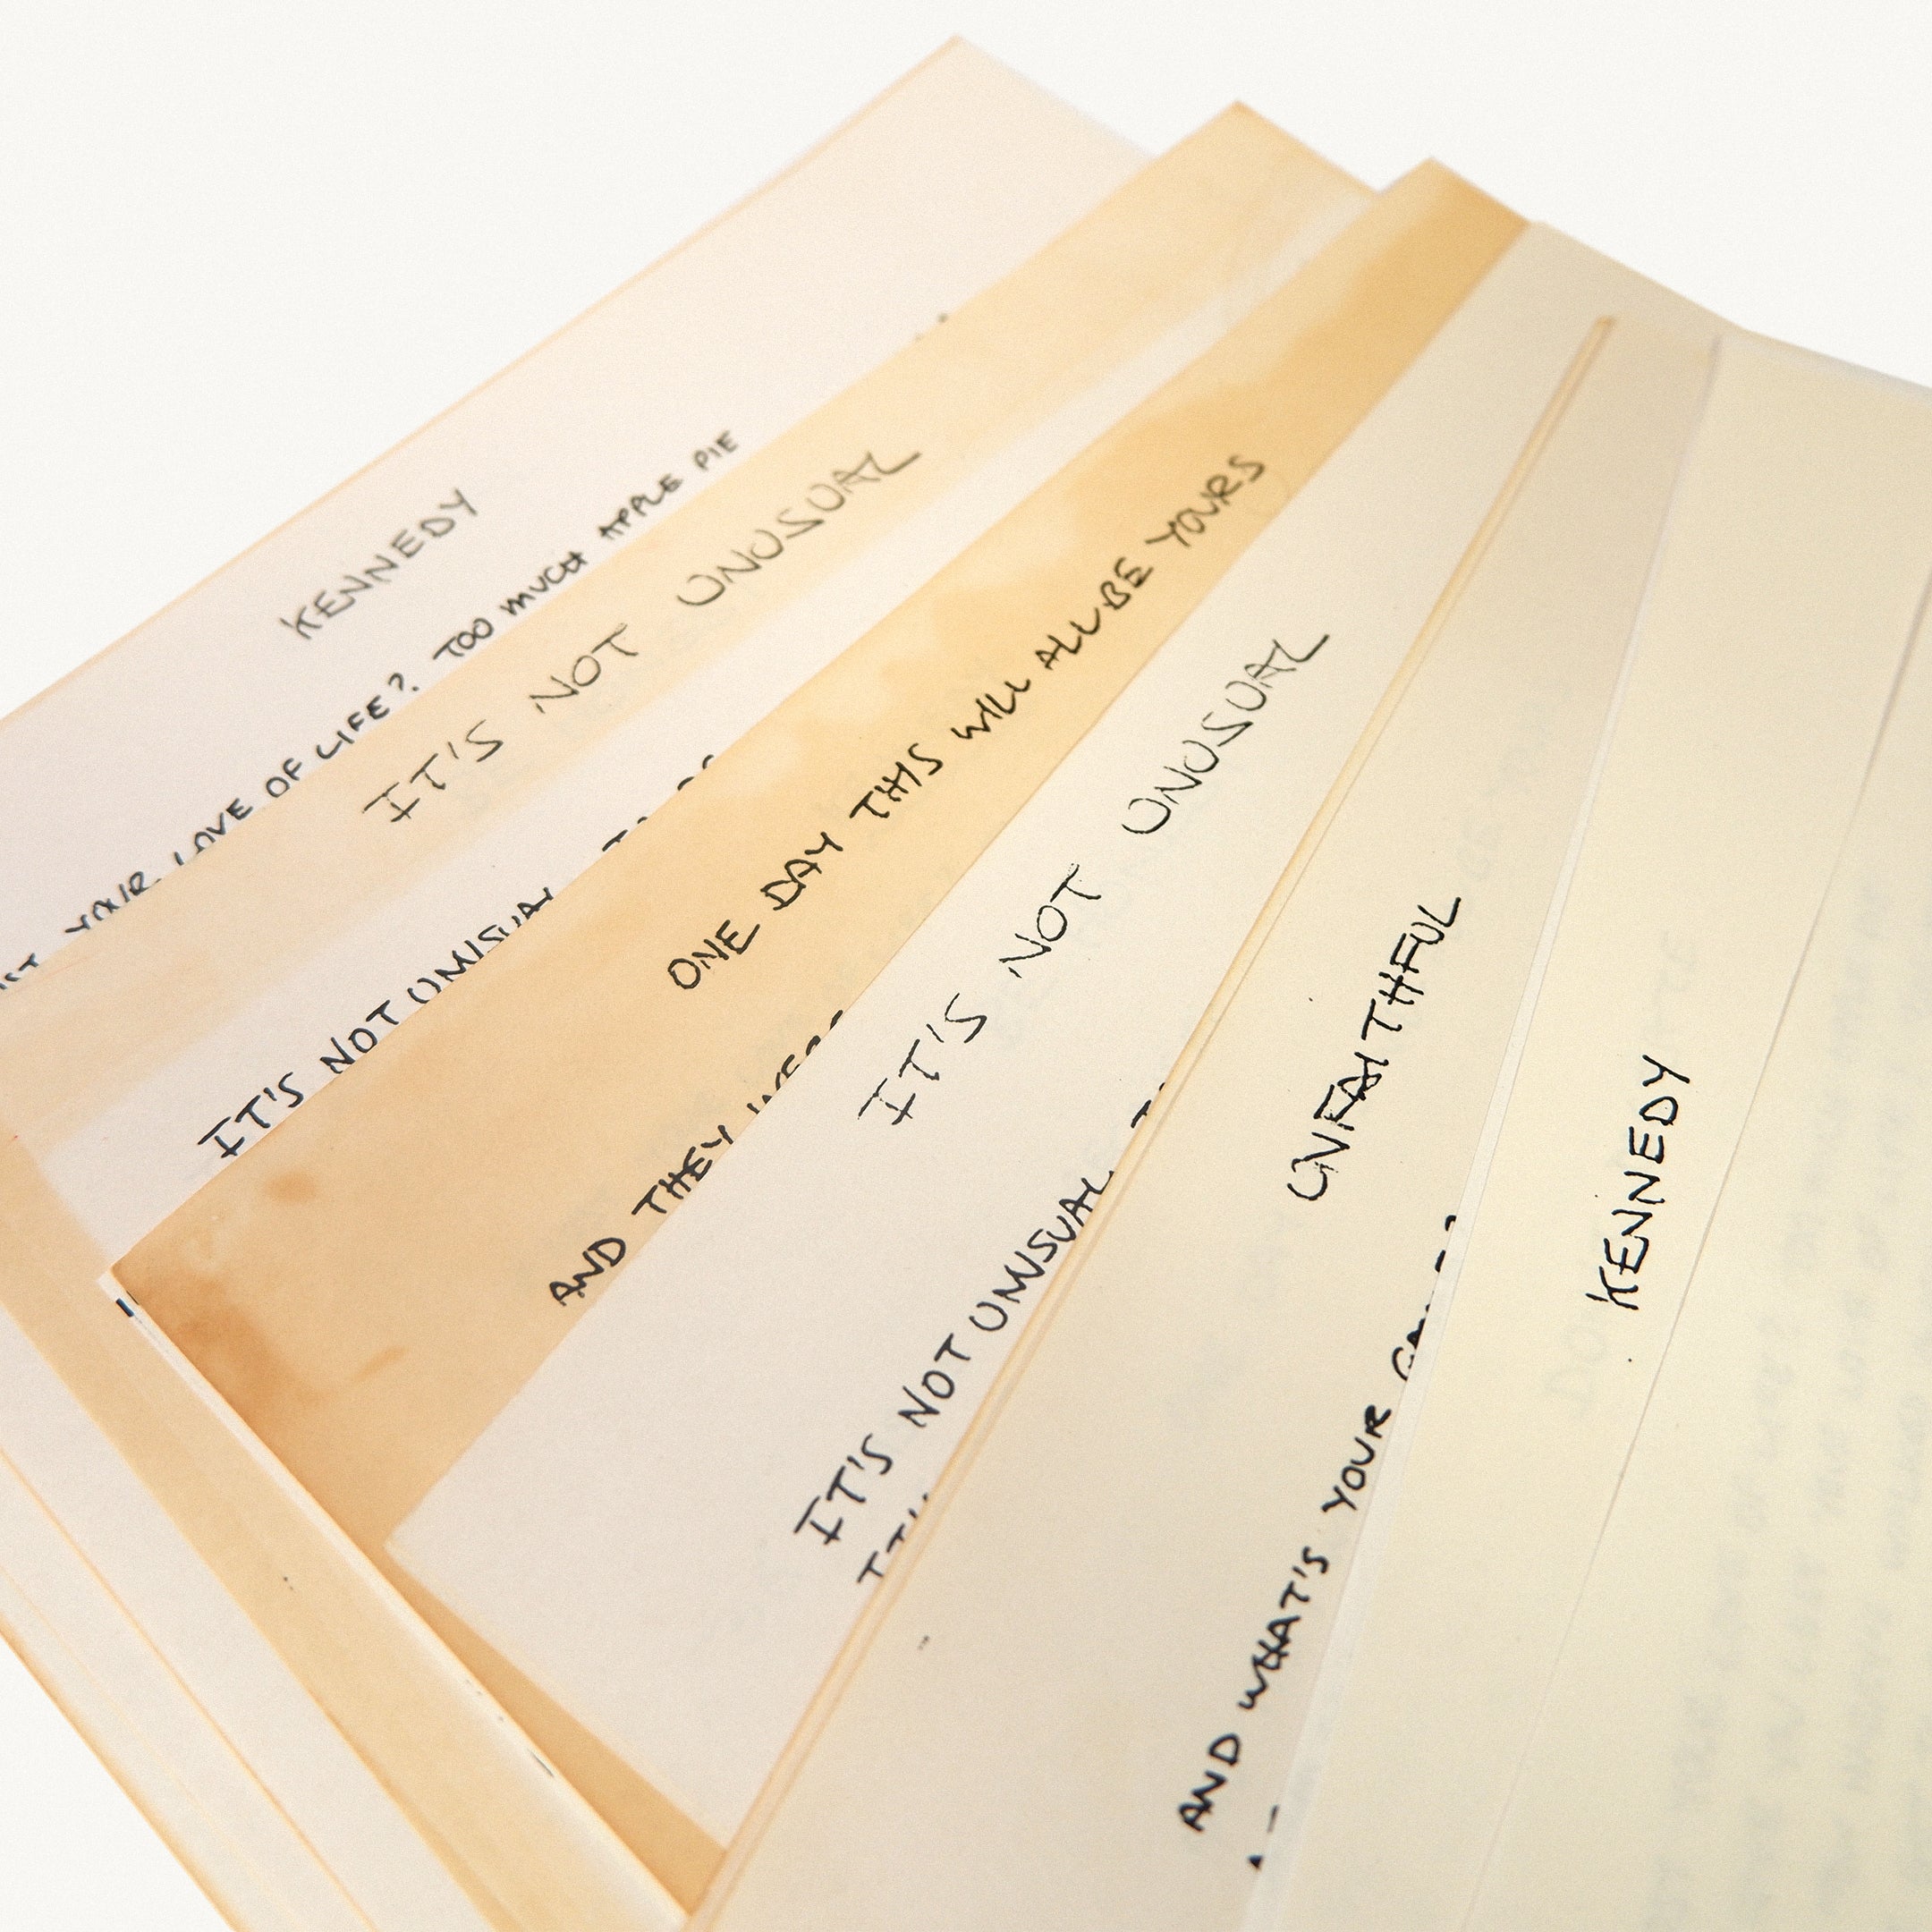 KENNEDY
YOUR LOVE OF LIFE? TOO MUCH APPLE PIE
IT'S NOT UNUSUAL
IT'S NOT UNUSUAL
ONE DAY THIS WILL ALL BE YOURS
AND THEY
IT'S NOT UNUSUAL
IT'S NOT UNUSUAL
UNFAITHFUL
AND WHAT'S YOUR
KENNEDY